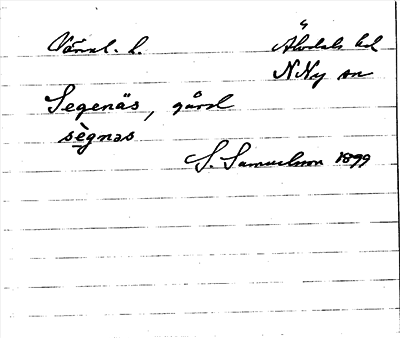 Värml. l.
Älvdals hd
N Ny sn
Segenäs, gård
sègnas
S. Samuelsson 1899